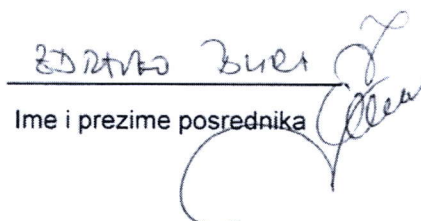 ZDRAVKO
Ime i prezime posrednika